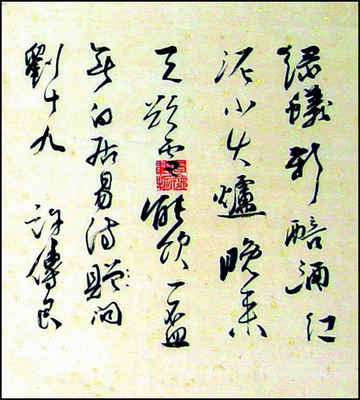 綠蟻新醅酒紅
泥小火爐晚來
天欲雪能飲一盃
無白居易詩贈問
劉十九 許傳良